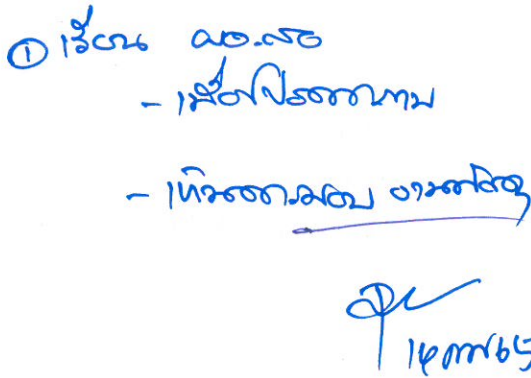 ① เรียน ผอ.สอ
- เพื่อโปรดทราบ
- เห็นควรมอบ งานพัสดุ